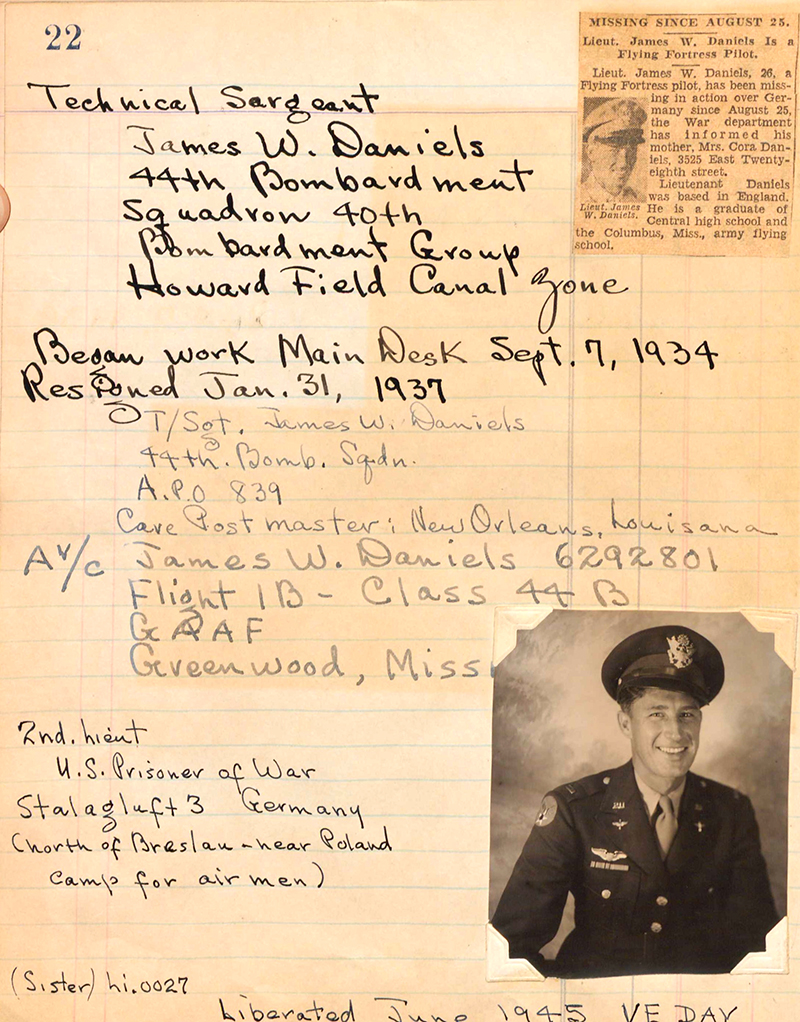 22
MISSING SINCE AUGUST 25.
Lieut. James W. Daniels Is a
Flying Fortress Pilot.
Lieut. James W. Daniels, 26, a
Flying Fortress pilot, has been miss-
ing in action over Ger-
many since August 25,
the War department
has informed his
mother, Mrs. Cora Dan-
iels, 3525 East Twenty-
eighth street.
Lieutenant Daniels
was based in England.
He is a graduate of
Central high school and
the Columbus, Miss., army flying
school.
Lieut. James
W. Daniels.
Technical Sargeant
James W. Daniels
44th Bombardment
Squadron 40th
Bombardment Group
Howard Field Canal Zone
Began work Main Desk Sept. 7, 1934
Resigned Jan. 31, 1937
T/Sgt. James W. Daniels
44th. Bomb. Sqdn.
A.P.O 839
Care Postmaster: New Orleans, Louisana
Av/c James W. Daniels 6292801
Flight 1B - Class 44 B
GAAF
Greenwood, Miss
2nd. Lieut
U.S. Prisoner of War
Stalagluft 3 Germany
(north of Breslau - near Poland
camp for air men)
(Sister) Li.0027
Liberated June 1945 VE DAY